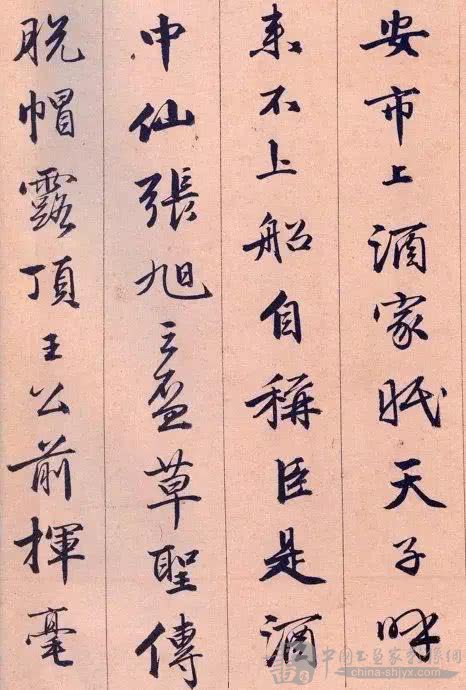 安市上酒家眠天子呼
来不上船自稱臣是酒
中仙張旭三盃草聖傳
脫帽露頂王公前揮毫
china-shjyx.com